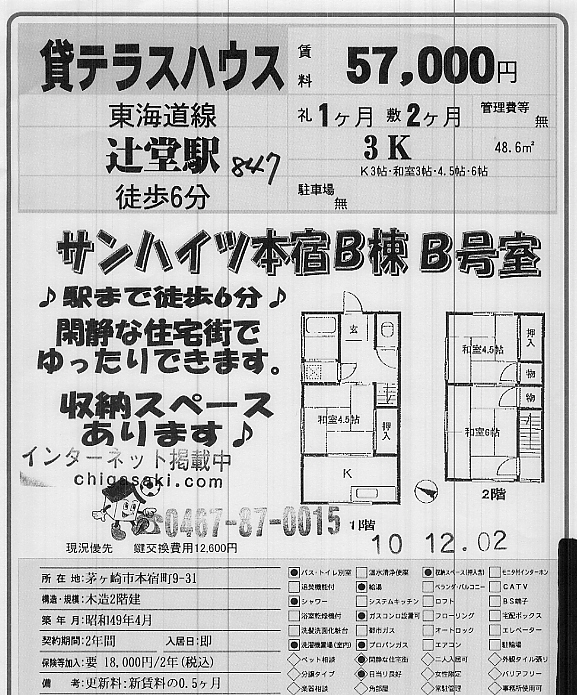 貸テラスハウス
賃料 57,000円
東海道線
辻堂駅
847
徒歩6分
礼 1ヶ月 敷 2ヶ月 管理費等 無
3K 48.6㎡
K3帖・和室3帖・4.5帖・6帖
駐車場 無
サンハイツ本宿B棟 B号室
♪駅まで徒歩6分♪
閑静な住宅街で
ゆったりできます。
収納スペース
あります♪
インターネット掲載中
chigasaki.com
☎0467-87-0015
現況優先 鍵交換費用12,600円
玄
和室4.5帖
押入
K
1階
和室4.5帖
押入
物
物
和室6帖
2階
10 12.02
所在地:茅ヶ崎市本宿町9-31
構造・規模:木造2階建
築年月:昭和49年4月
契約期間:2年間 入居日:即
保険等加入:要 18,000円/2年(税込)
備考:更新料:新賃料の0.5ヶ月
バス・トイレ別室 温水洗浄便座 収納スペース(押入含) モニタ付インターホン
追焚機能付 給湯 ベランダ・バルコニー CATV
シャワー システムキッチン ロフト BS端子
浴室乾燥機付 ガスコンロ設置可 フローリング 宅配ボックス
洗髪洗面化粧台 都市ガス オートロック エレベーター
洗濯機置場(室内) プロパンガス エアコン 駐輪場
ペット相談 閑静な住宅街 二人入居可 外観タイル張り
分譲タイプ 日当り良好 女性限定 バリアフリー
楽器相談 角部屋 常駐管理 事務所使用可